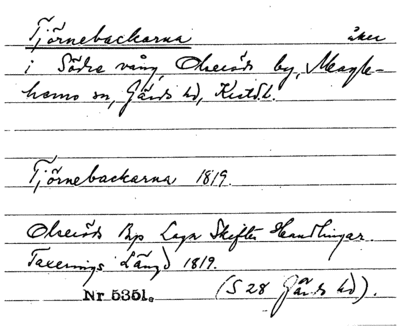 Tjörnebackarna åker
i Södra vång, Olseröds by, Magle-
hems sn, Gärds hd, Krstd. l.
Tjörnebackarna 1819.
Olseröds By Laga Skiftes Handlingar.
Taxerings Längd 1819.
Nr 5351. (S 28 Gärds hd).